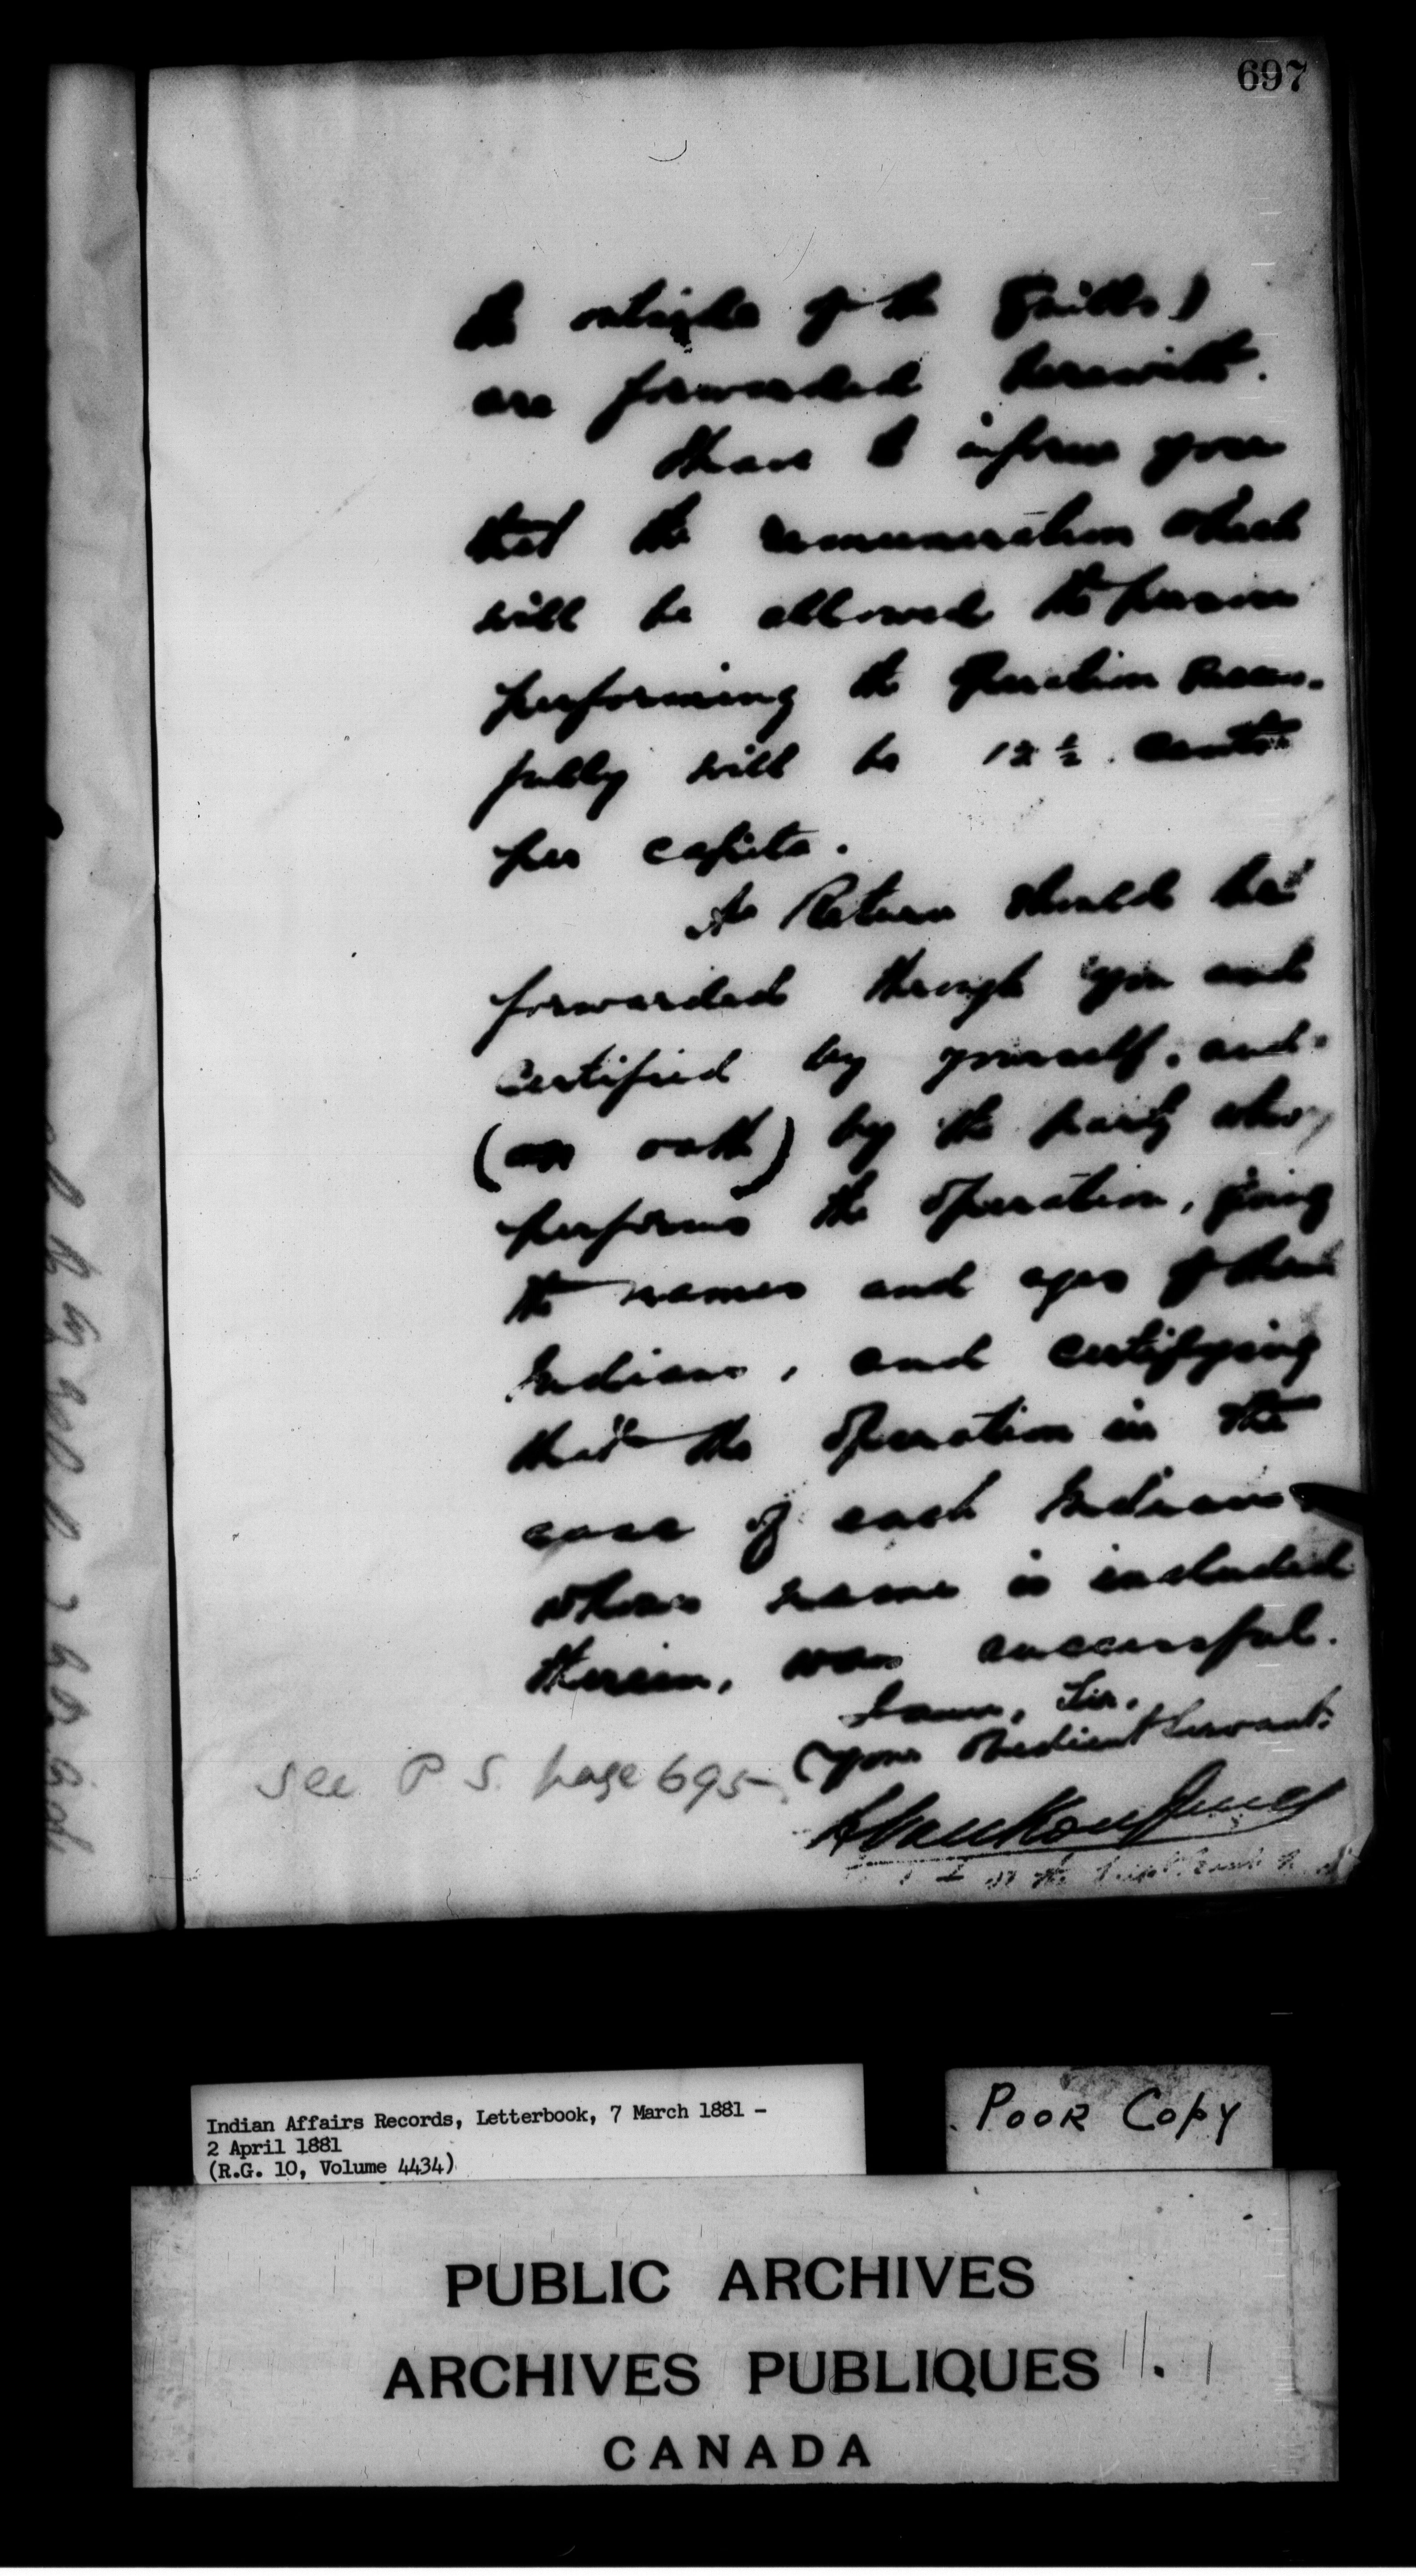 697
the outside of the Quills)
are forwarded herewith.
I have to inform you
that the remuneration which
will be allowed the person
performing the operation success-
fully will be 12 ½ cents
per capita.
A Return should be
forwarded through you and
certified by yourself, and
(on oath) by the party who
performs the operation, giving
the names and ages of the
Indians, and certifying
that the operation in the
case of each Indian
whose name is included
therein, was successful.
I am, Sir,
Your obedient Servant.
See P S. page 695
Indian Affairs Records, Letterbook, 7 March 1881 -
2 April 1881
(R.G. 10, Volume 4434)
POOR COPY
PUBLIC ARCHIVES
ARCHIVES PUBLIQUES
CANADA